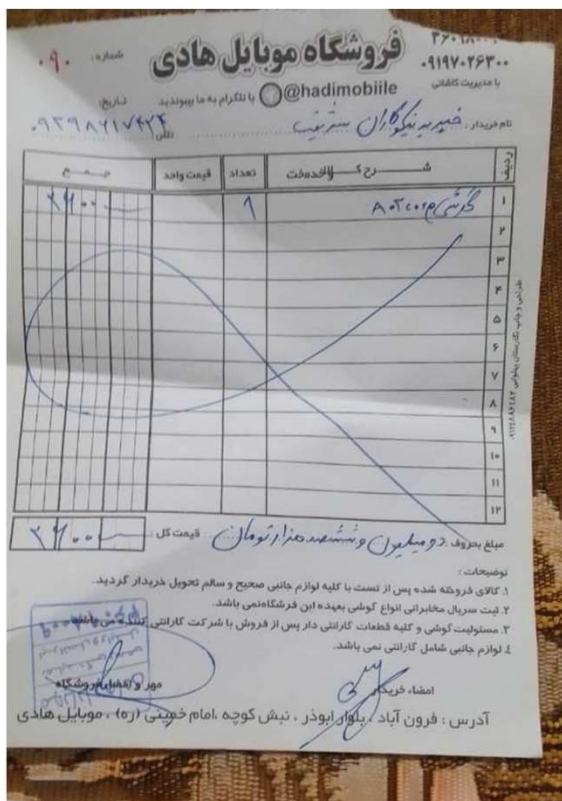 ۰۹۱۹۷۰۲۶۳۰۰
فروشگاه موبایل هادی
شماره: ۰۹۰
با مدیریت کاشانی
@hadimobiile با تلگرام به ما بپیوندید
تاریخ:
نام خریدار: خیریه نیکوکاران
تلفن ۰۹۳۹۸۶۱۷۴۲۴
ردیف شرح کالا/خدمات تعداد قیمت واحد جمع
۱ گوشی ۱ ۲۶۰۰
۲
۳
۴
۵
۶
۷
۸
۹
۱۰
۱۱
۱۲
مبلغ بحروف: دو میلیون و ششصد هزار تومان قیمت کل: ۲۶۰۰
توضیحات:
۱. کالای فروخته شده پس از تست با کلیه لوازم جانبی صحیح و سالم تحویل خریدار گردید.
۲. ثبت سریال مخابراتی انواع گوشی بعهده این فرشگاه نمی باشد.
۳. مسئولیت گوشی و کلیه قطعات گارانتی دار پس از فروش با شرکت گارانتی کننده می باشد.
٤. لوازم جانبی شامل گارانتی نمی باشد.
امضاء خریدار
مهر و امضاء فروشگاه
آدرس : فرون آباد ، بلوار ابوذر ، نبش کوچه ،امام خمینی (ره) ، موبایل هادی